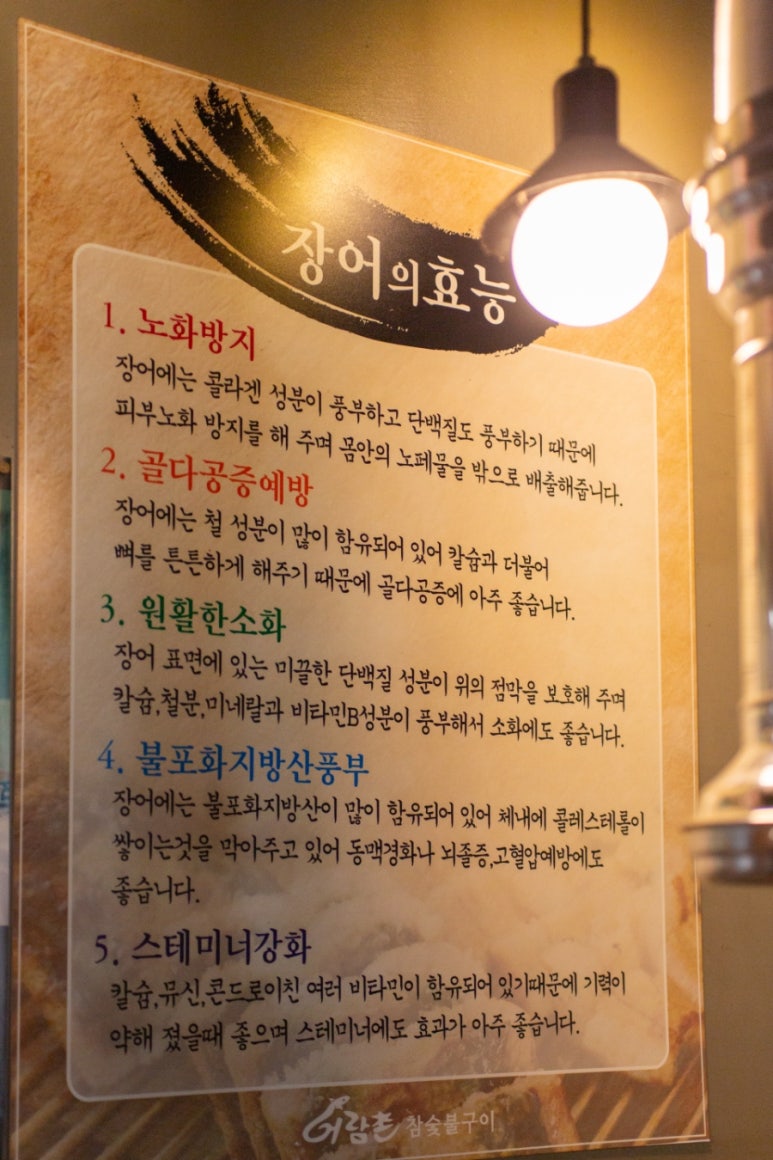 장어의효능
1. 노화방지
장어에는 콜라겐 성분이 풍부하고 단백질도 풍부하기 때문에
피부노화 방지를 해 주며 몸안의 노페물을 밖으로 배출해줍니다.
2. 골다공증예방
장어에는 철 성분이 많이 함유되어 있어 칼슘과 더불어
뼈를 튼튼하게 해주기 때문에 골다공증에 아주 좋습니다.
3. 원활한소화
장어 표면에 있는 미끌한 단백질 성분이 위의 점막을 보호해 주며
칼슘,철분,미네랄과 비타민B성분이 풍부해서 소화에도 좋습니다.
4. 불포화지방산풍부
장어에는 불포화지방산이 많이 함유되어 있어 체내에 콜레스테롤이
쌓이는것을 막아주고 있어 동맥경화나 뇌졸증,고혈압예방에도
좋습니다.
5. 스테미너강화
칼슘,뮤신,콘드로이친 여러 비타민이 함유되어 있기때문에 기력이
약해 졌을때 좋으며 스테미너에도 효과가 아주 좋습니다.
어람촌 참숯불구이